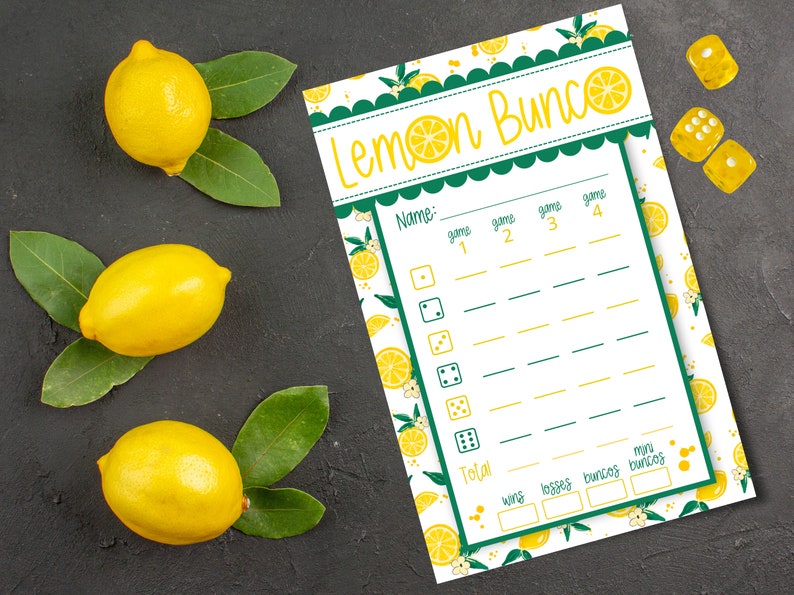 Lemon Bunco
Name:
game 1 game 2 game 3 game 4
Total
wins losses buncos mini buncos